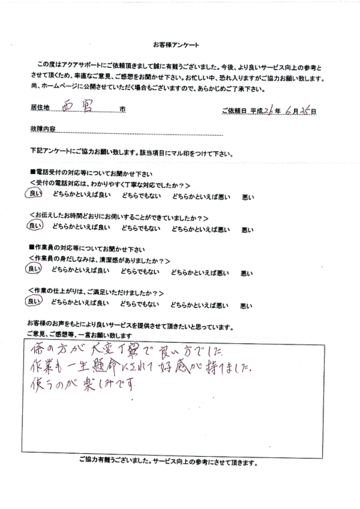 お客様アンケート
この度はアクアサポートにご依頼頂きまして誠に有難うございました。今後、より良いサービス向上の参考と
させて頂くため、率直なご意見、ご感想をお聞かせ下さい。お忙しい中、恐れ入りますがご協力お願い致します。
尚、ホームページに公開させていただく場合もございますので、あらかじめご了承下さい。
居住地 西宮 市 ご依頼日 平成26年 6月25日
故障内容
下記アンケートにご協力お願い致します。該当項目にマル印をつけて下さい。
■電話受付の対応等についてお聞かせ下さい
<受付の電話対応は、わかりやすく丁寧な対応でしたか?>
良い どちらかといえば良い どちらでもない どちらかといえば悪い 悪い
<お伝えしたお時間どおりにお伺いすることができていましたか?>
良い どちらかといえば良い どちらでもない どちらかといえば悪い 悪い
■作業員の対応等についてお聞かせ下さい
<作業員の身だしなみは、清潔感がありましたか?>
良い どちらかといえば良い どちらでもない どちらかといえば悪い 悪い
<作業の仕上がりは、ご満足いただけましたか?>
良い どちらかといえば良い どちらでもない どちらかといえば悪い 悪い
お客様のお声をもとにより良いサービスを提供させて頂きたいと思っています。
ご意見、ご感想等、一言お願い致します
係の方が大変丁寧で良い方でした
作業も一生懸命にされて好感が持てました.
使うのが楽しみです
ご協力有難うございました。サービス向上の参考にさせて頂きます。